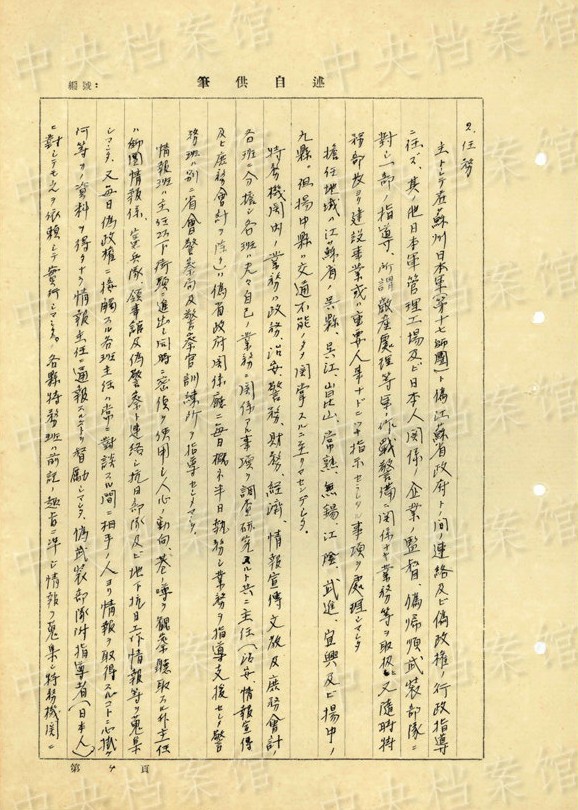 中央档案馆
編號：
筆供自述
2. 任務
主トシテ在蘇州日本軍(第十七師團)ト偽江蘇省政府トノ間ノ連絡及ビ偽政権ノ行政指導
ニ任ズ其ノ他日本軍管理工場及ビ日本人関係ノ企業ノ監督、偽帰順武装部隊ニ
対シ一部ノ指導、所謂敵産處理等軍ノ作戦警備ニ関係ナキ業務等ヲ取扱ヒ又随時特
務部及ヨリ建設事業或ハ重要人事ナドニツキ指示セラレタル事項ヲ處理シマシタ
擔任地域ハ江蘇省ノ呉縣、呉江、崑山、常熟、無錫、江陰、武進、宜興及ビ揚中ノ
九縣。但揚中縣ハ交通不能ノタメ関掌スルニ至リマセンデシタ。
特務機関内ノ業務ハ政務、治安、警務、財務、経済、情報宣傳、文教及庶務會計ノ
各班ニ分擔シ各班ハ夫々自己ノ業務ニ関係アル事項ヲ調査研究スルト共ニ主任(治安、情報宣傳
及ビ庶務會計ヲ除ク)ハ偽省政府関係廳ニ毎日概ネ半日執務シ業務ヲ指導支援セシメ警
務班ハ別ニ省會警察局及警察官訓練所ヲ指導セシメマシタ。
情報班ハ主任以下街頭ニ進出シ同時ニ密偵ヲ使用シ人心ノ動向、巷ノ噂ヲ観察聴取スル外主任
ハ師團情報係、憲兵隊、領事館及偽警察ト連絡シ抗日部隊及ビ地下抗日工作情報等ヲ蒐集
シマシタ。又毎日偽政権ニ接觸スル各班主任ハ常ニ対談スル間ニ相手ノ人ヨリ情報ヲ取得スルコトニ心掛ケ
何等カノ資料ヲ得タナラ情報主任ニ通報スル様督励シマシタ。偽武装部隊附指導者(日本人)
ニ對シテモ之ヲ依頼シテ置キマシタ。各縣特務班ハ前記ノ趣旨ニ準ジ情報ヲ蒐集シ特務機関ニ
第 頁